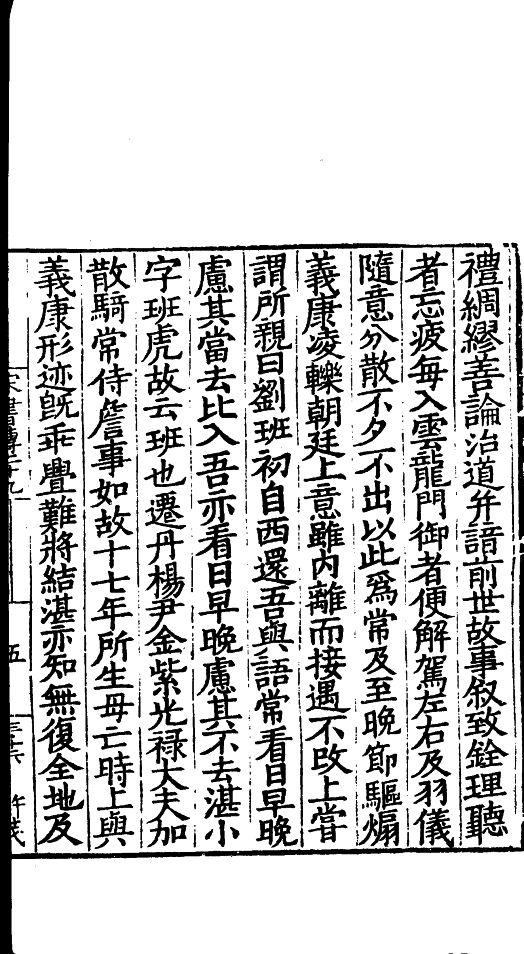 禮綢繆善論治道幷諳前世故事叙致銓理聽
者忘疲每入雲龍門御者便解駕左右及羽儀
隨意分散不夕不出以此爲常及至晚節驅煽
義康凌轢朝廷上意雖內離而接遇不改上嘗
謂所親曰劉班初自西還吾與語常看日早晚
慮其當去比入吾亦看日早晚慮其不去湛小
字班虎故云班也遷丹楊尹金紫光禄大夫加
散騎常侍詹事如故十七年所生母亡時上與
義康形迹旣乖舋難將結湛亦知無復全地及
五